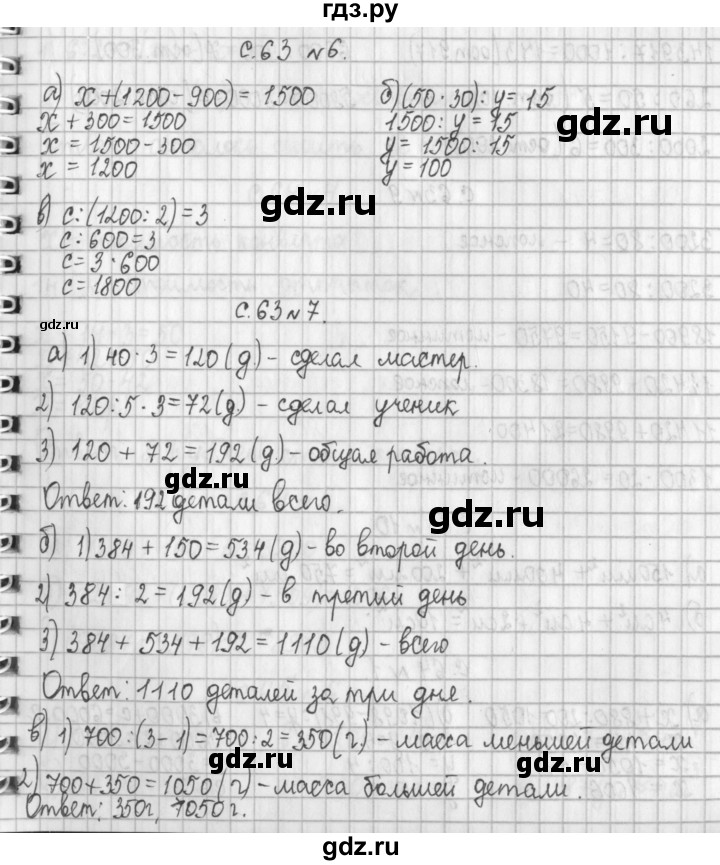 гдз.ру
с.63 №6.
а) x+(1200-900)=1500
x+300=1500
x=1500-300
x=1200
б)(50·30):y=15
1500:y=15
y=1500:15
y=100
gdz.ru
gdz.ru
в) c:(1200:2)=3
c:600=3
c=3·600
c=1800
gdz.ru
с.63 №7.
а) 1) 40·3=120(д) - сделал мастер.
2) 120:5·3=72(д) - сделал ученик
gdz.ru
3) 120+72=192(д) - общая работа.
gdz.ru
Ответ: 192 детали всего.
gdz.ru
б) 1) 384+150=534(д) - во второй день.
gdz.ru
2) 384:2=192(д) - в третий день
3) 384+534+192=1110(д) - всего
gdz.ru
Ответ: 1110 деталей за три дне.
в) 1) 700:(3-1)=700:2=350(г.) - масса меньшей детали
gdz.ru
gdz.ru
2) 700+350=1050(г) - масса большей детали.
Ответ: 350г, 1050г.
gdz.ru
gdz.ru